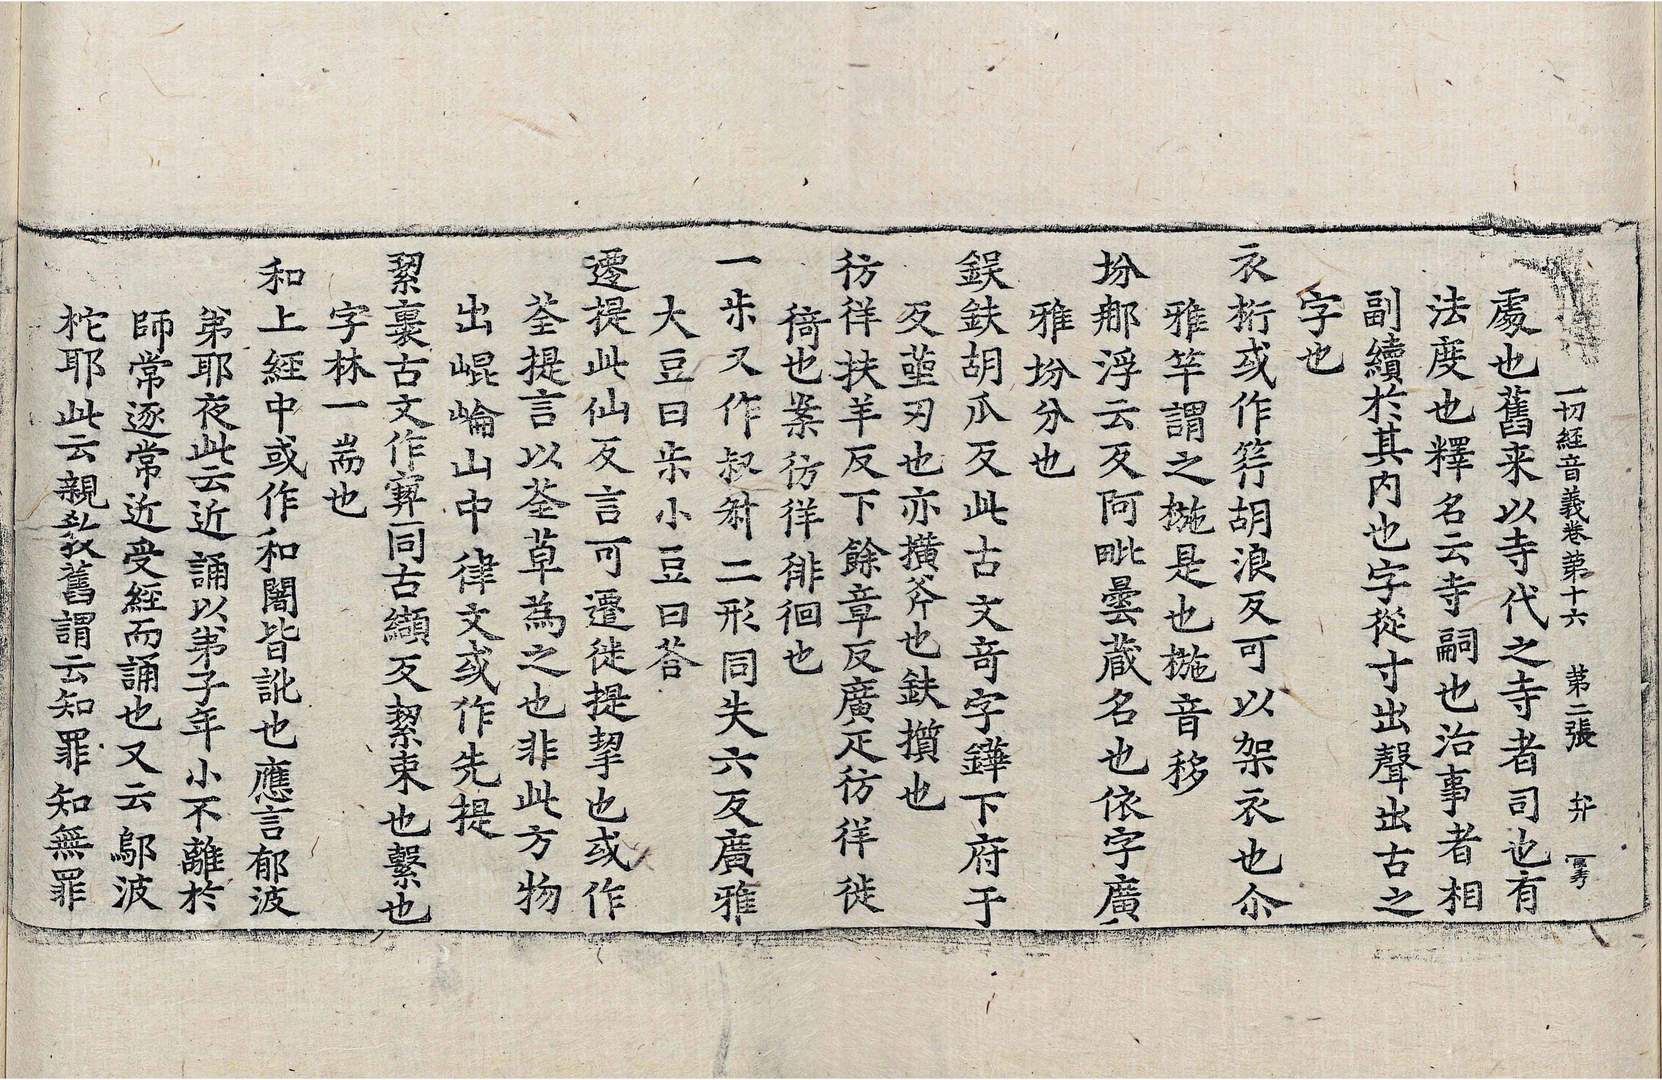 一切経音義卷苐十六 第二張 弁
䖏也舊来以寺代之寺者司也有
法度也釋名云寺嗣也治事者相
副續於其内也字從寸出聲出古之
字也
衣桁或作䇮胡浪反可以架衣也尒
雅竿謂之椸是也椸音移
坋那浮云反阿毗曇蔵名也依字廣
雅坋分也
鋘鈇胡瓜反此古文竒字鏵下府于
反莝刃也亦撗斧也鈇攢也
彷徉扶羊反下餘章反廣疋彷徉徙
徛也案彷徉徘徊也
一尗又作叔𠦑二形同失六反廣雅
大豆曰尗小豆曰荅
遷提此仙反言可遷徙提挈也或作
荃提言以荃草為之也非此方物
出崐崘山中律文或作先提
絜裹古文作㝣同古纈反絜束也繫也
字林一耑也
和上經中或作和闍皆訛也應言郁波
苐耶夜此云近誦以弟子年小不離於
師常逐常近受經而誦也又云鄔波
柁耶此云親教舊謂云知罪知無罪